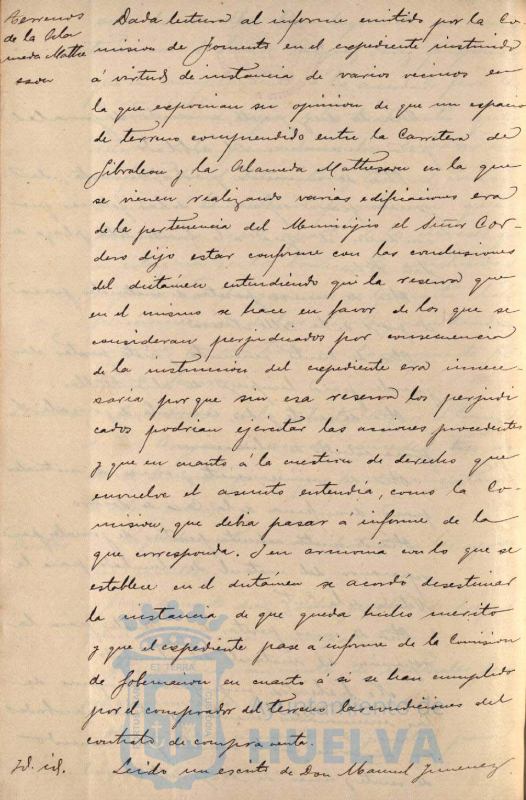 Terrenos
de la Ala
meda Mathe
sson
Dada lectura al informe emitido por la Co-
mision de Fomento en el expediente instruido
á virtud de instancia de varios vecinos en
la que exponian su opinion de que un espacio
de terreno comprendido entre la Carretera de
Gibraleon y la Alameda Mathesson en la que
se vienen realizando varias edificaciones era
de la pertenencia del Municipio el Señor Cor-
dero dijo estar conforme con las conclusiones
del dictámen entendiendo que la reserva que
en el mismo se hace en favor de los que se
consideran perjudicados por consecuencia
de la instruccion del expediente era innece-
saria por que sin esa reserva los perjudi
cados podrian ejercitar las acciones procedentes
y que en cuanto á la cuestion de derecho que
envuelve el asunto entendia, como la Co-
mision, que debia pasar a informe de la
que corresponda. Y en armonia con lo que se
establece en el dictámen se acordó desestimar
la instancia de que queda hecho merito
y que el expediente pase á informe de la Comision
de Gobernacion en cuanto á si se han cumplido
por el comprador del terreno las condiciones del
contrato de compra venta.
Id. id. Leido un escrito de Don Manuel Jimenez
Ayuntamiento de
HUELVA